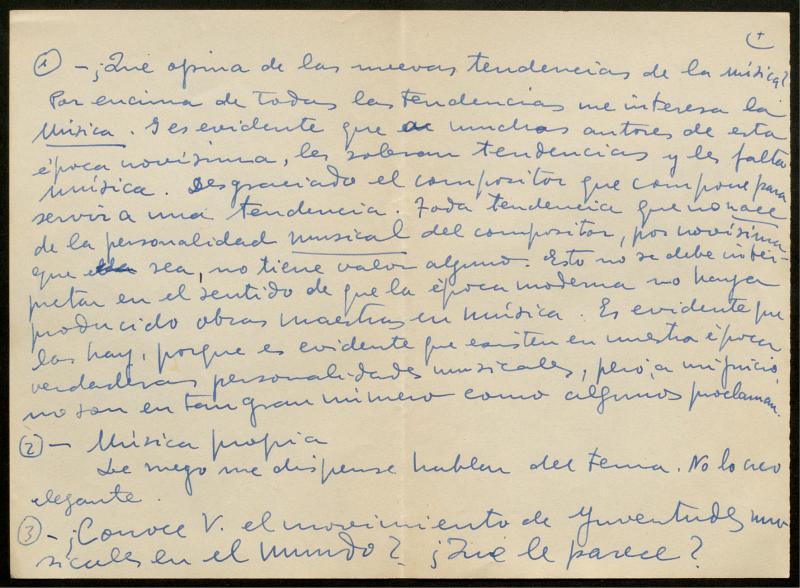 ① - ¿Qué opina de las nuevas tendencias de la música?
Por encima de todas las tendencias me interesa la
Música. Y es evidente que a muchos autores de esta
época novísima, les sobran tendencias y les falta
música. Desgraciado el compositor que compone para
servir a una tendencia. Toda tendencia que no nace
de la personalidad musical del compositor, por novísima
que ella sea, no tiene valor alguno. Esto no se debe inter-
pretar en el sentido de que la época moderna no haya
producido obras maestras en música. Es evidente que
las hay, porque es evidente que existen en nuestra época
verdaderas personalidades musicales, pero, a mi juicio,
no son en tan gran número como algunos proclaman.
② - Música propia
Le ruego me dispense hablar del tema. No lo creo
elegante.
③ - ¿Conoce V. el movimiento de Juventudes mu-
sicales en el mundo? ¿Qué le parece?